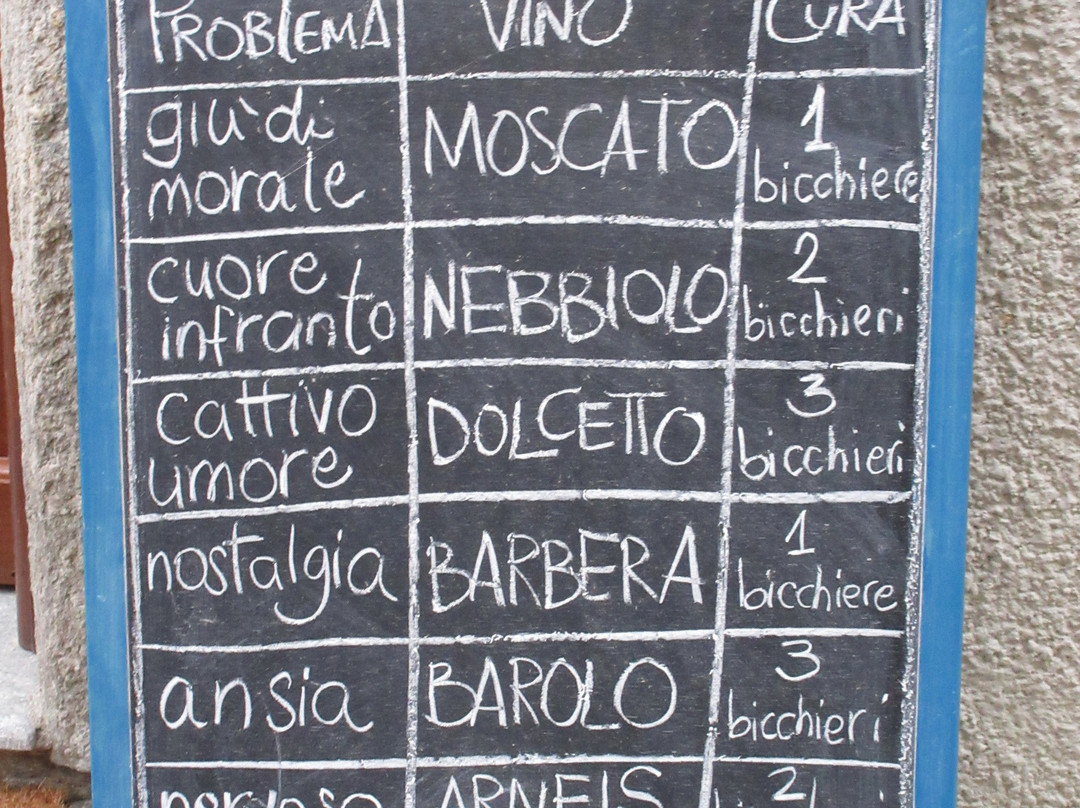 PROBLEMA VINO CURA
giù di morale MOSCATO 1 bicchiere
cuore infranto NEBBIOLO 2 bicchieri
cattivo umore DOLCETTO 3 bicchieri
nostalgia BARBERA 1 bicchiere
ansia BAROLO 3 bicchieri
nervoso ARNEIS 2